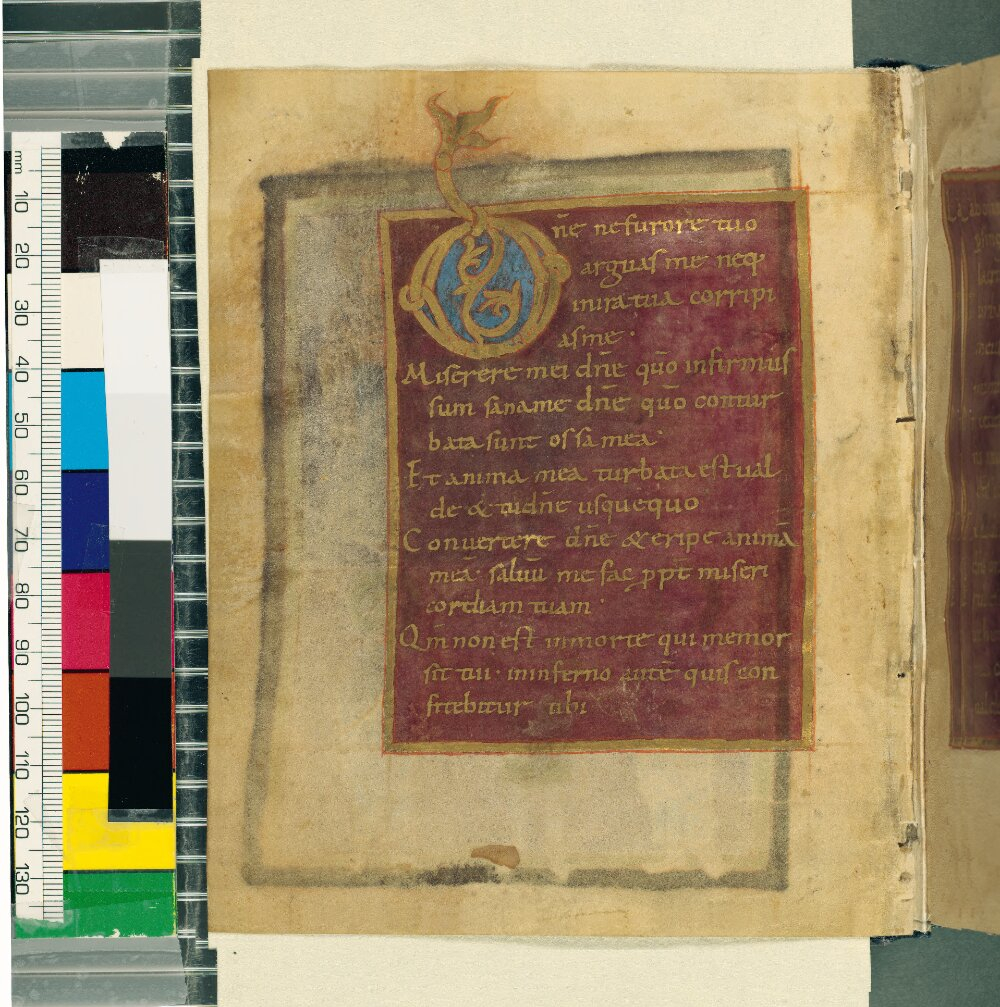 Dñe ne furore tuo
arguas me neq;
in ira tua corripi
as me ·
Miserere mei dñe qũo infirmus
sum sana me dñe quõ contur
bata sunt ossa mea ·
Et anima mea turbata est ual
de & tu dñe usquequo
Conuertere dñe & eripe animã
meã · saluũ me fac ppt̃ miseri
cordiam tuam ·
Qm̃ non est in morte qui memor
sit tui · in inferno autẽ quis con
fitebitur tibi
mm
10
20
30
40
50
60
70
80
90
100
110
120
130